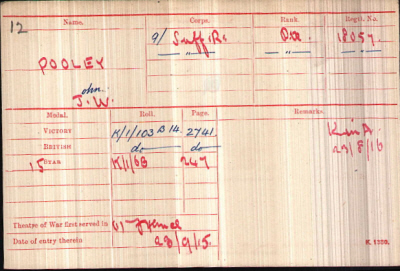 12 Corps. Rank. Regtl. No.
9/ Suff. R. Pte. 18057.
POOLEY
ohn
J.W.
Medal. Roll. Page. Remarks.
VICTORY K/1/103 B 14. 2741
BRITISH do do
15 STAR K/1/6B 247
K in A.
23/8/16
Theatre of War first served in (1) France
Date of entry therein 28/9/15.
K. 1380.